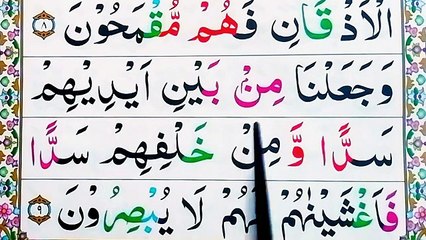 الْاَذْقَانِ فَهُمْ مُّقْمَحُوْنَ ۝۸
وَجَعَلْنَا مِنْۢ بَيْنِ اَيْدِيْهِمْ
سَدًّا وَّ مِنْ خَلْفِهِمْ سَدًّا
فَاَغْشَيْنٰهُمْ فَهُمْ لَا يُبْصِرُوْنَ ۝۹